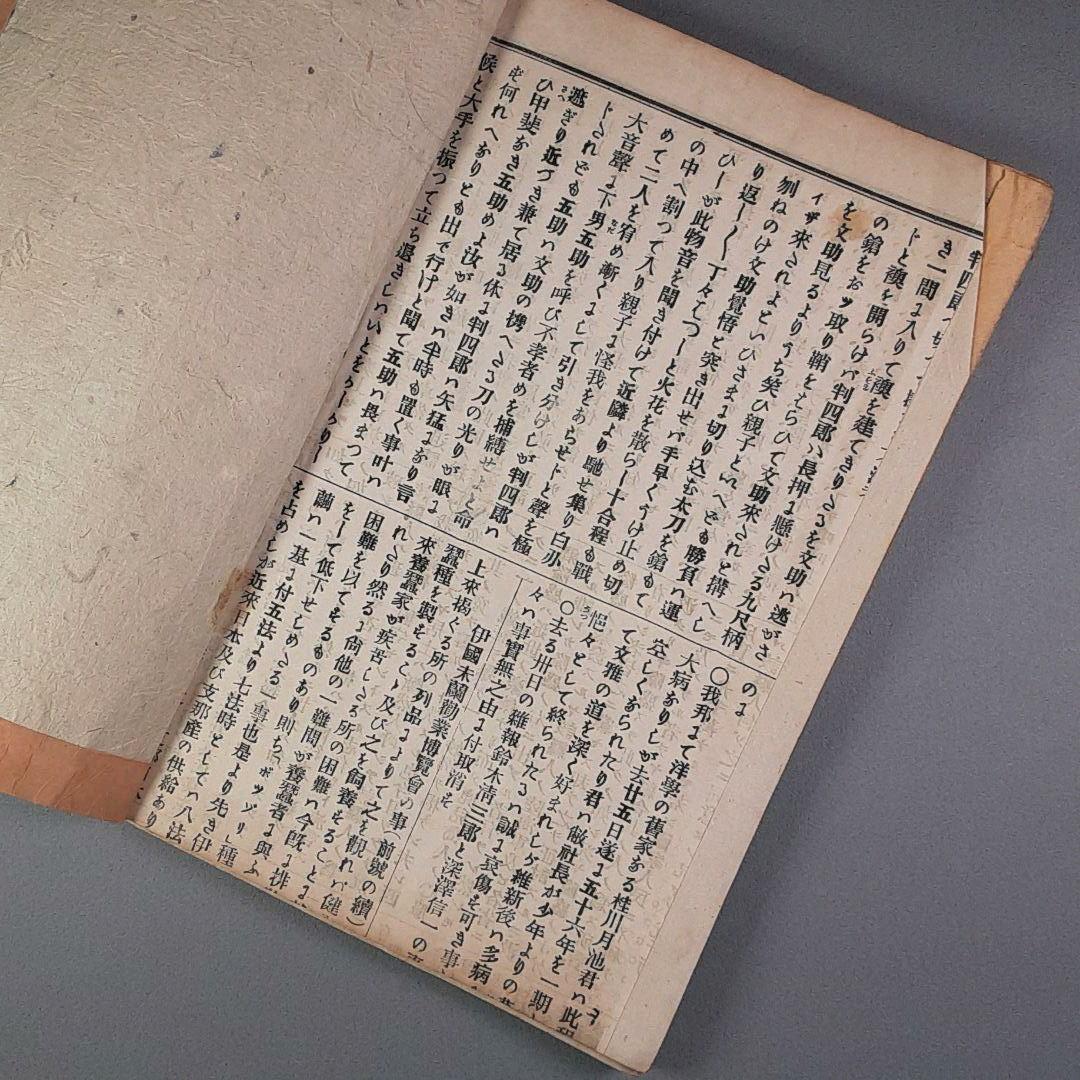 き一間は入りて襖を建てきりたるを文助ハ逃がさ
じと襖を開らけバ判四郎ハ長押は懸けたる九尺柄
の鎗をおッ取り鞘をはらひて文助來たれと搆へし
を文助見るよりうち笑ひ親子といへども勝負ハ運
イザ來たれよといひさまは切り込む太刀を鎗もて
刎ねのけ文助覺悟と突き出せバ手早くうけ止め切
り返し〳〵丁々はつしと火花を散らし十合程も戰
ひしが此物音を聞き付けて近隣より馳せ集り白刃
の中へ割つて入り親子は怪我をあらせじと聲を極
めて二人を宥め漸くよして引き分けしが判四郎ハ
大音聲は下男五助を呼び不孝者めを捕縛せよと命
じたれども五助ハ文助の携へたる刀の光りが眼は
遮ぎり近づき兼て居る体は判四郎ハ矢猛はあり言
ひ甲斐なき五助めよ汝が如きハ半時も置く事叶ハ
ず何れへなりとも出で行けと聞て五助ハ畏まつて
候と大手を振つて立ち退きしハ
のは
○我邦はて洋學の舊家なる桂川月池君ハ此
大病なりしが去廿五日遂は五十六年を一期
空しくなられたり君ハ敝社長が少年よりの
て文雅の道を深く好まれしが維新後ハ多病
悒々として終られたるハ誠は哀傷す可き事
○去る卅日の雜報鈴木淸三郎と深澤信一の
々ハ事實無之由は付取消を
伊國未蘭勸業博覽會の事(前號の續)
上來揭ぐる所の列品はよりて之を觀れバ健
蠶種を製すること及び之を飼養することは
來養蠶家が疾苦したる所の困難ハ今旣は排
れたり然るは尙他の一難問が養蠶者は與ふ
困難を以てするものあり則ち「ボッヅリ」種
をして低下せしめたる一事也是より先き伊
繭ハ一基は付五法より七法時としてハ八法
を占めしが近來日本及び支那產の供給あり